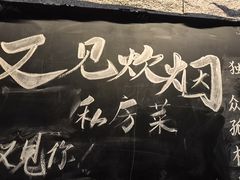 又见炊烟
私房菜
又见你！
独
众